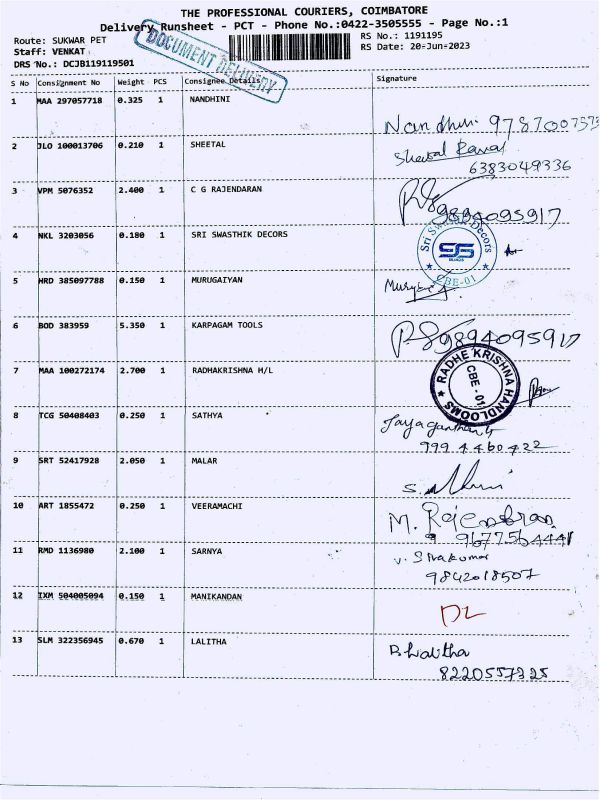 THE PROFESSIONAL COURIERS, COIMBATORE
Delivery Runsheet - PCT - Phone No.:0422-3505555 - Page No.:1
Route: SUKWAR PET
RS No.: 1191195
Staff: VENKAT
RS Date: 20-Jun-2023
DRS No.: DCJB119119501
DOCUMENT DELIVERY
S No Consignment No Weight PCS Consignee Details Signature
1 MAA 297057718 0.325 1 NANDHINI
Nandhini 9787007573
2 JLO 100013706 0.210 1 SHEETAL
Sheetal Rawal
6383049336
3 VPM 5076352 2.400 1 C G RAJENDARAN
9894095917
4 NKL 3203056 0.180 1 SRI SWASTHIK DECORS
Sri Swasthik Decors
CBE-01
5 HRD 385097788 0.150 1 MURUGAIYAN
6 BOD 383959 5.350 1 KARPAGAM TOOLS
9894095917
7 MAA 100272174 2.700 1 RADHAKRISHNA H/L
RADHE KRISHNA HANDLOOMS
CBE - 01
8 TCG 50408403 0.250 1 SATHYA
999 4460422
9 SRT 52417928 2.050 1 MALAR
10 ART 1855472 0.250 1 VEERAMACHI
M. Rajendran
11 RMD 1136980 2.100 1 SARNYA
V. Sivakumar
9842018507
12 IXM 504005094 0.150 1 MANIKANDAN
DL
13 SLM 322356945 0.670 1 LALITHA
8220557325